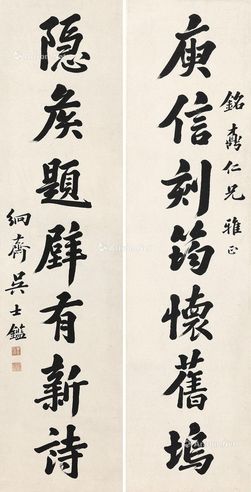 庾信刻筠懷舊塢
銘仁兄雅正
隐矦題壁有新詩
絅齋吳士鑑